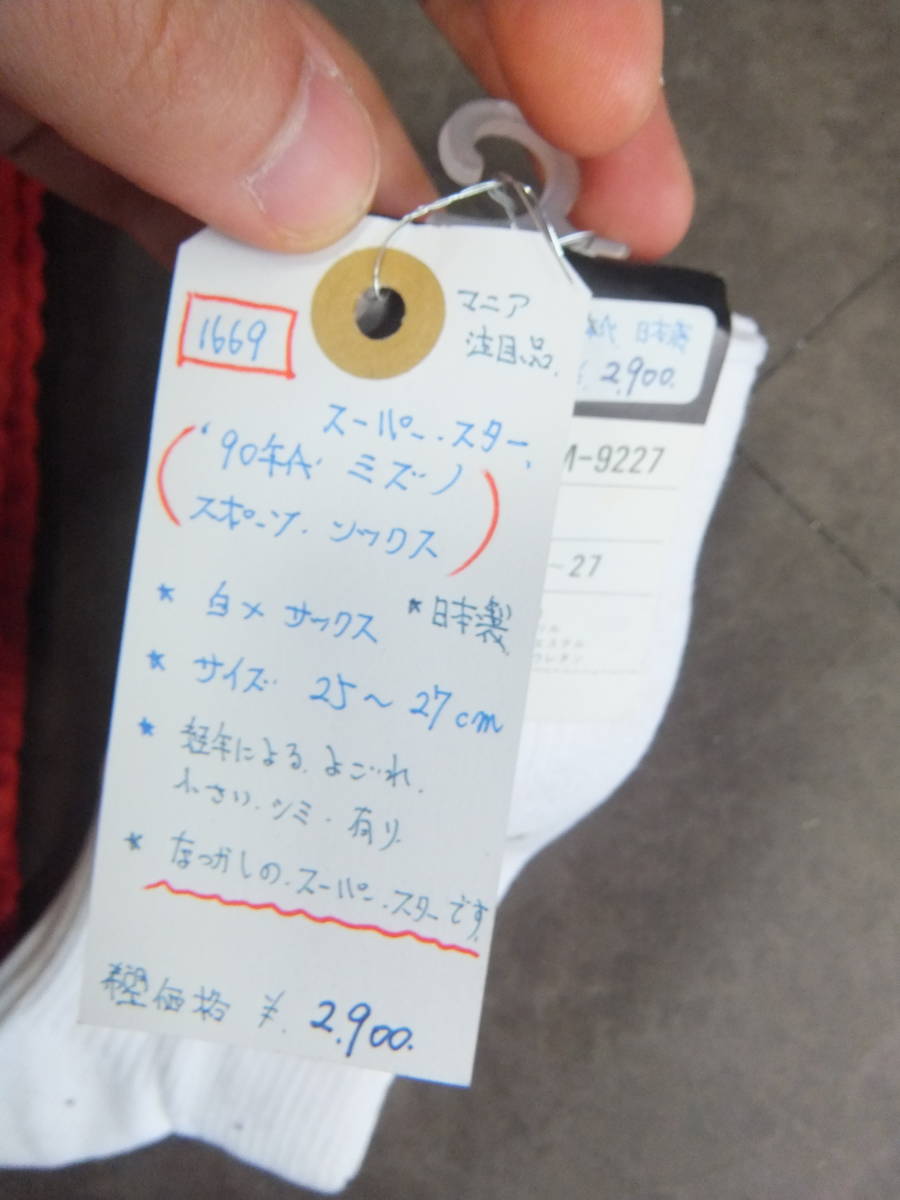 1669
マニア
注目品.
スーパー.スター,
'90年代 ミズノ
スポーツ. ソックス
* 白×サックス *日本製
* サイズ 25〜27cm
* 経年による.よごれ.
小さい.シミ.有り
* なつかしの.スーパー.スターです.
価格 ¥.2,900.
日本製
¥.2,900.
M-9227
~27
ウレタン